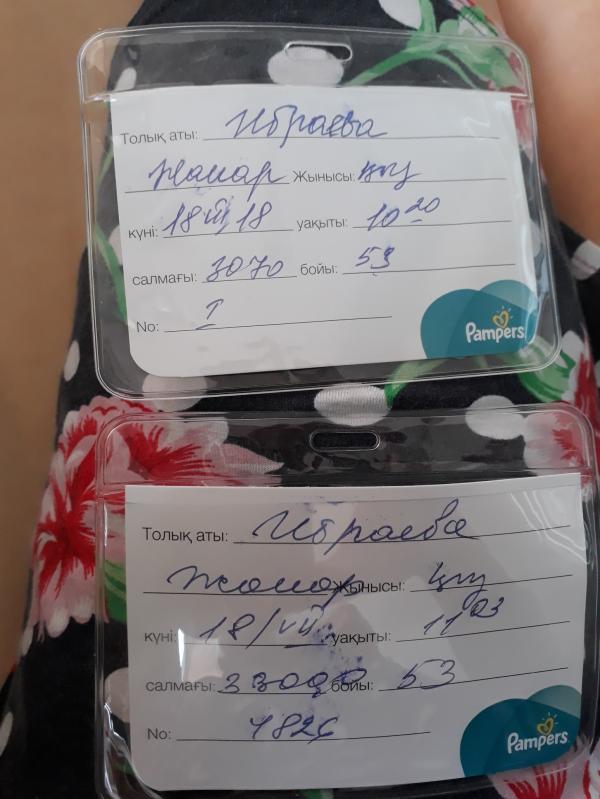 Толық аты: Ибраева
Жанар Жынысы: қыз
күні: 18 VII 18 уақыты: 10 20
салмағы: 3070 бойы: 53
No: I
Pampers
Толық аты: Ибраева
Жанар Жынысы: қыз
күні: 18/VII. уақыты: 11 03
салмағы: 3300 бойы: 53
No:
Pampers